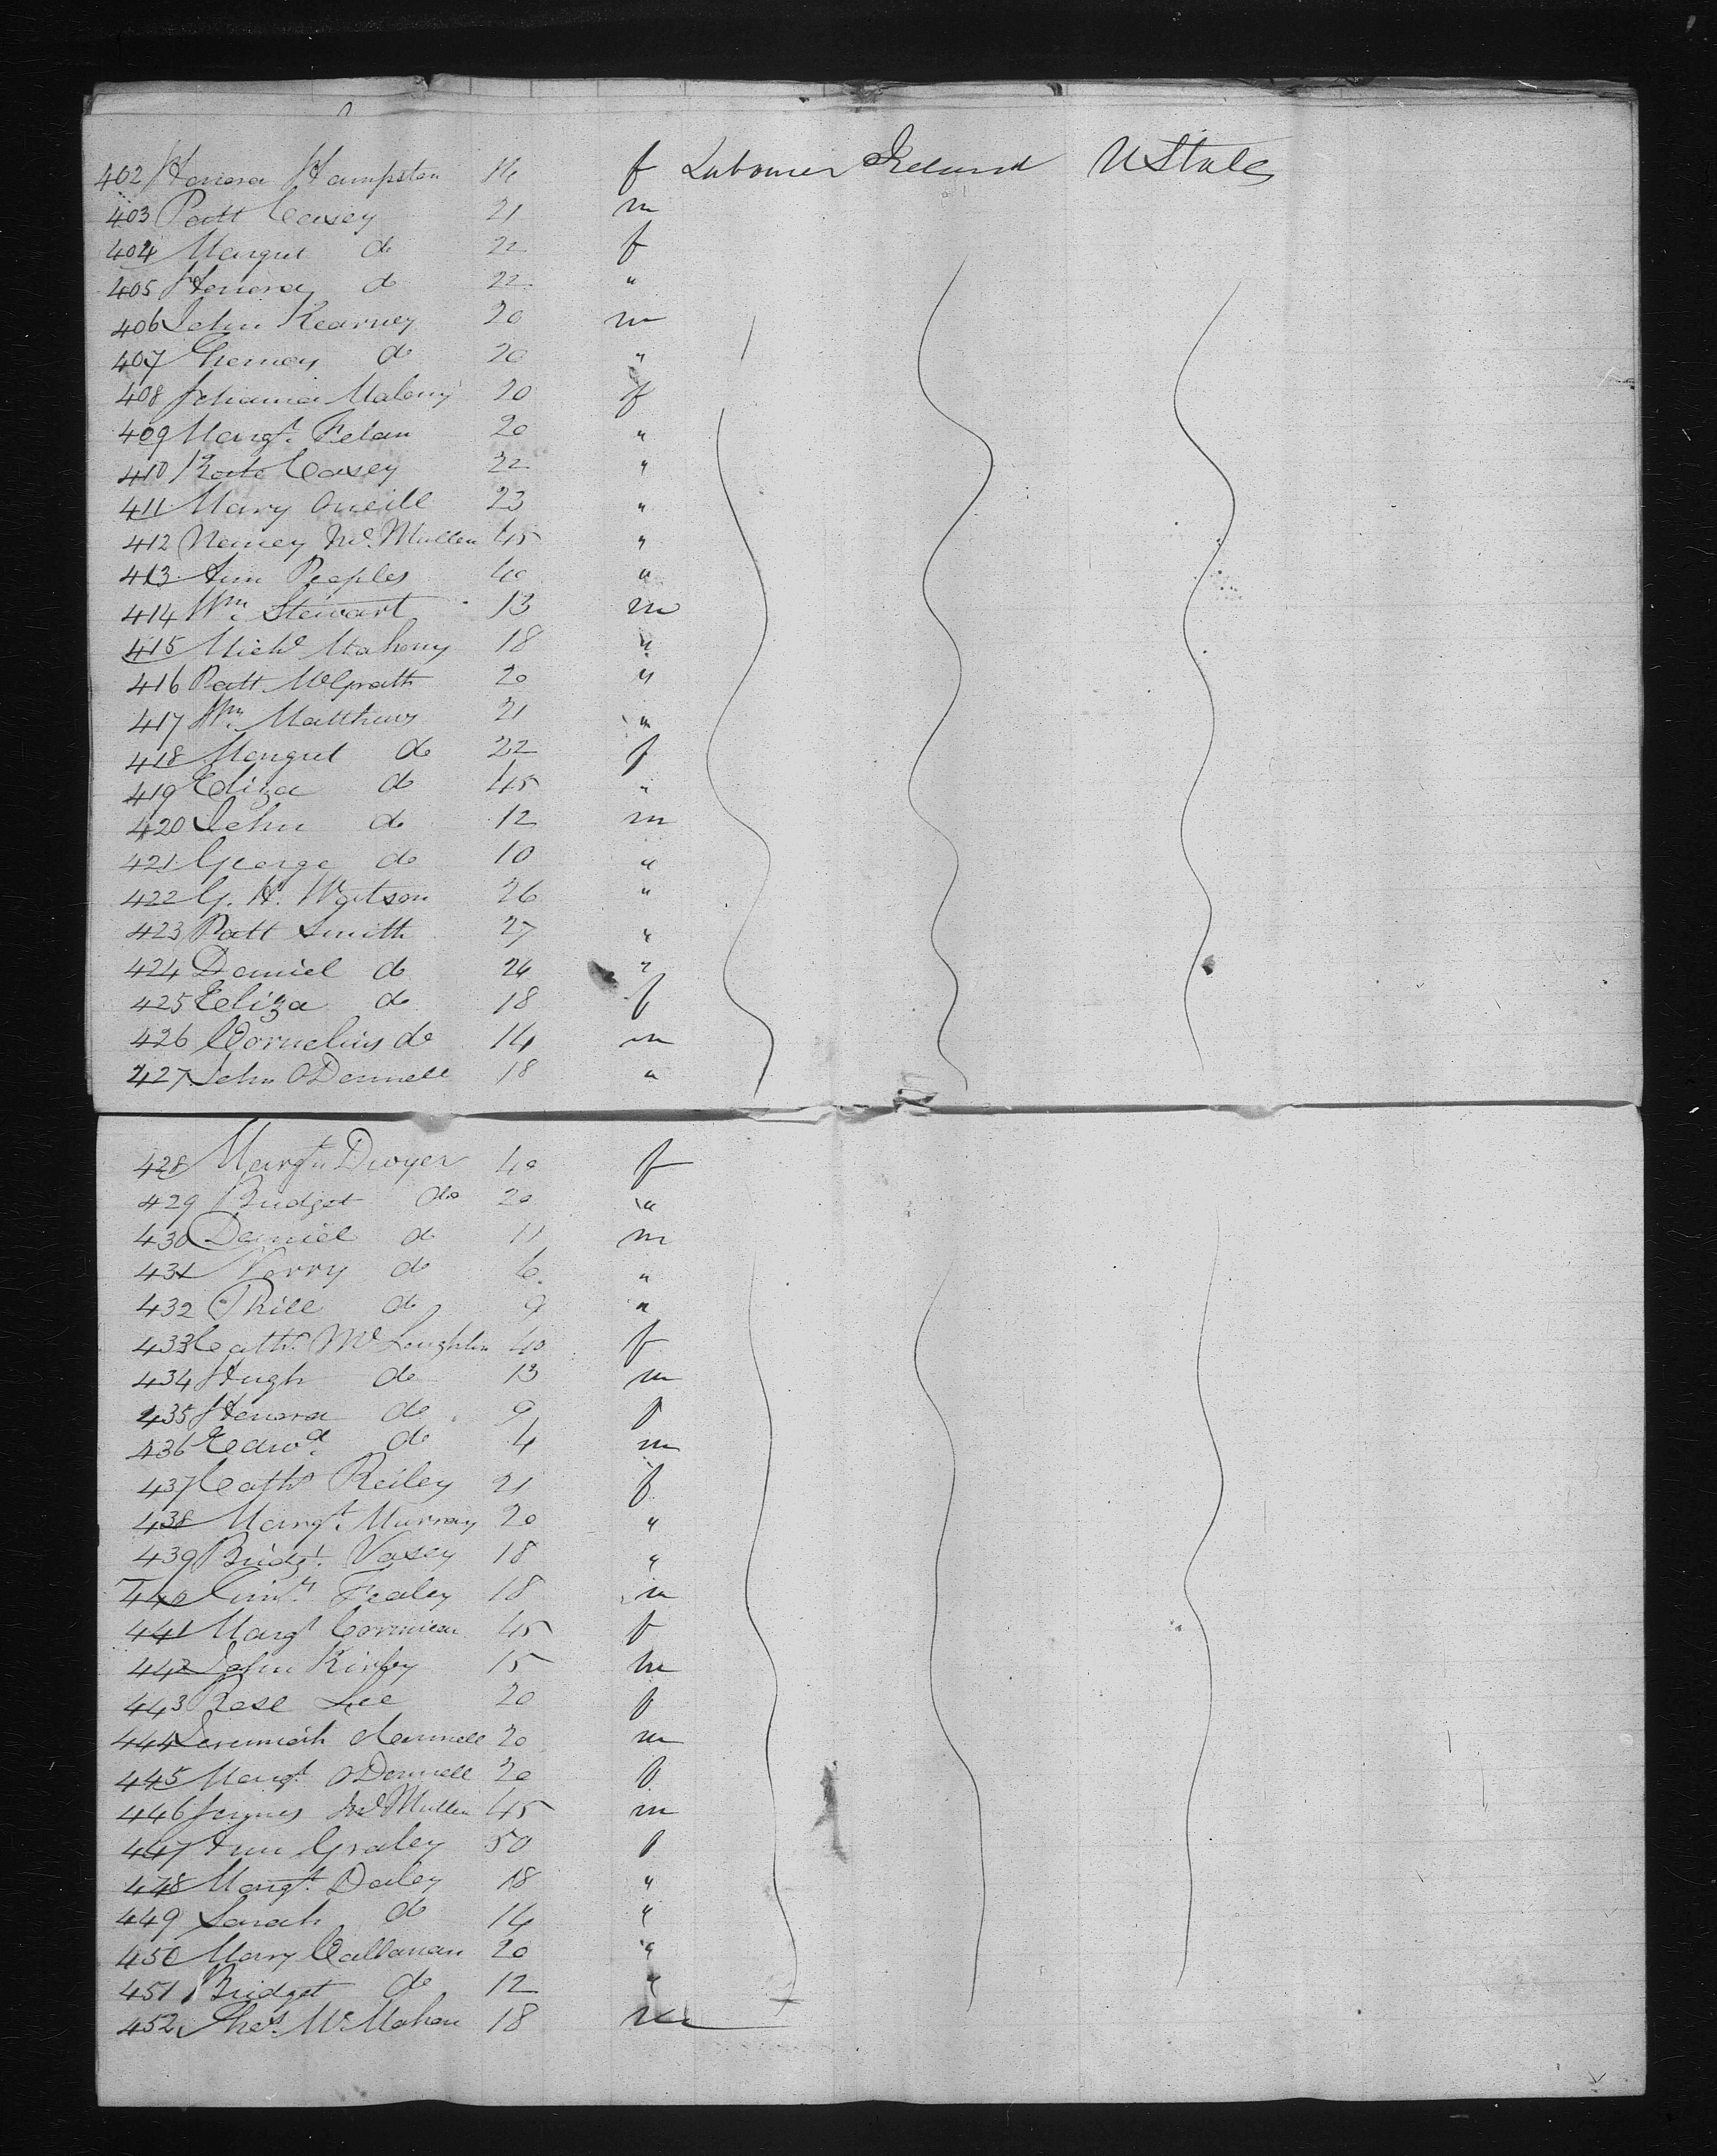 402 Honora Hampston 14 f Labourer Ireland U States
403 Patt Casey 21 m
404 Margret do 22 f
405 Honora do 22 "
406 John Kearney 20 m
407 do 20 "
408 Johanna Malony 20 f
409 Margt. Felan 20 "
410 Kate Casey 22 "
411 Mary Oneill 23 "
412 Nancy Mc.Mullen 45 "
413 Ann Peoples 40 "
414 Wm. Stewart 13 m
415 Michl Mahony 18 "
416 Patt McGrath 20 "
417 Wm. Matthews 21 "
418 Margret do 22 f
419 Eliza do 45 "
420 John do 12 m
421 George do 10 "
422 G. H. Watson 26 "
423 Patt Smith 27 "
424 Daniel do 24 "
425 Eliza do 18 f
426 Cornelius do 14 m
427 John ODonnell 18 "
428 Margt Dwyer 40 f
429 Bridget do 20 "
430 Daniel do 11 m
431 do 6 "
432 Phill do 9 "
433 Cath. Mc Loughlin 40 f
434 Hugh do 13 m
435 Honora do 9 f
436 Edwd. do 4 m
437 Cath Reiley 21 f
438 Margt. Murray 20 "
439 Bridgt. Vaxey 18 "
440 Fealey 18 m
441 Margt 45 f
442 John Kirby 15 m
443 Rose Lee 20 f
444 Jeremiah 20 m
445 Margt ODonnell 20 f
446 James Mc Mullen 45 m
447 Ann Graley 50 f
448 Margt. Daley 18 "
449 Sarah do 14 "
450 Mary Callanan 20 "
451 Bridget do 12 "
452 Thos. Mc Mahon 18 m